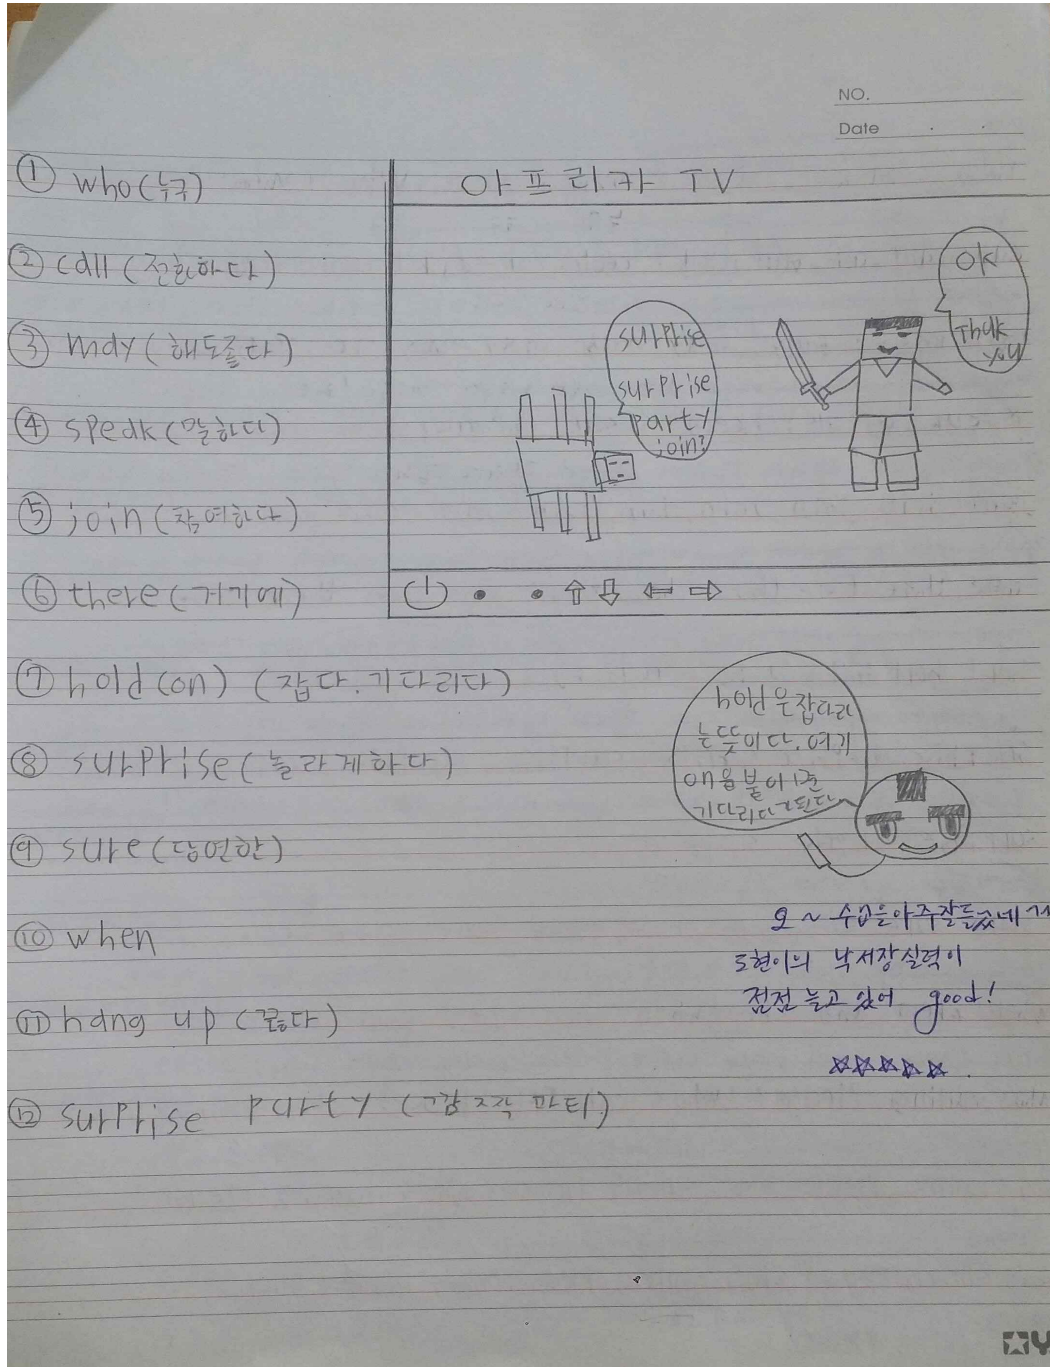 NO.
Date
① who (누구)
② call (전화하다)
③ may (해도좋다)
④ speak (말하다)
⑤ join (참여하다)
⑥ there (거기에)
⑦ hold (on) (잡다. 기다리다)
⑧ surprise (놀라게하다)
⑨ sure (당연한)
⑩ when
⑪ hang up (끊다)
⑫ surprise party (깜짝 파티)
아프리카 TV
surprise
surprise
party
join?
OK
Thak
you
hold 은 잡다라
는 뜻이다. 여기
애 음 붙이
기다리다가된다
오 ~ 수업을 아주 잘 들었네
도현이의 낙서장 실력이
점점 늘고 있어 good!
☆☆☆☆☆.